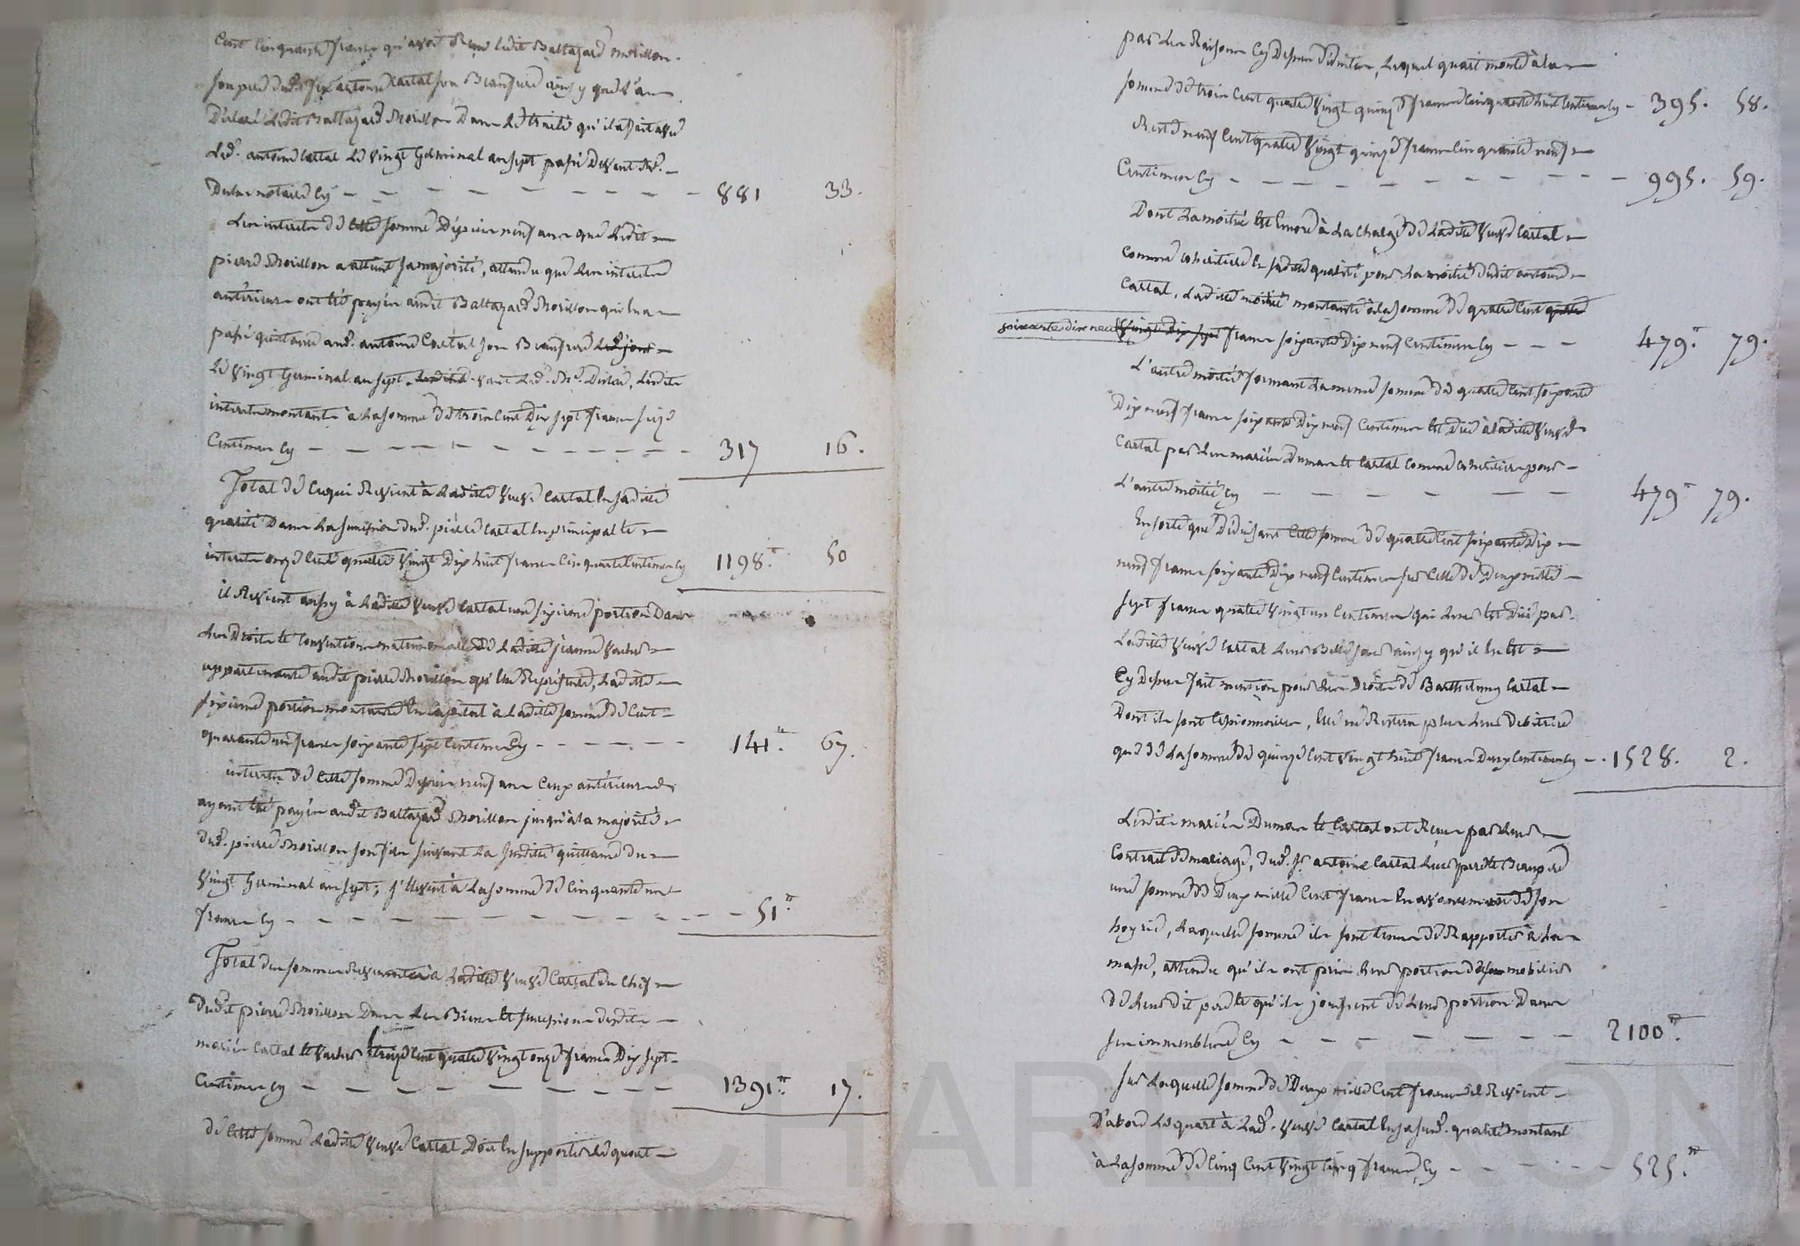 cent cinquante francs qu'avoit Reçu ledit Baltazard Morillon
son pere dud. feu antoine Cartal son Beaufrere ainsy que l'a
Declaré ledit Baltazard Morillon Dans le traité qu'il a fait avec
led. antoine Cartal le vingt Germinal an sept passé Devant Me.
notaire Cy - - - - - - - - - - 881 33.
Les interets de cette somme Depuis neuf ans que ledit
pierre Morillon a attint sa majorité, attendu que les interets
anterieurs ont été payés audit Baltazard Morillon qui en a
passé quittance aud. antoine Cartal son Beaufrere led. jour
le vingt Germinal an sept led. Me. lesdits
interets montants à la somme de trois cent Dix sept francs seize
Centimes Cy - - - - - - - - - 317 16.
Total de ce qui Revient à laditte veuve Cartal en saditte
qualité Dans la succession dud. pierre Cartal en principal et
interets onze cent quatre vingt Dix huit francs cinquante centimes cy 1198.tt 50
il Revient aussy à laditte veuve Cartal une sixieme portion Dans
les Droits et conventions matrimoniales de laditte jeanne vacher
appartenants audit pierre Morillon qu'elle Represente, laditte
sixieme portion montant en capital à laditte somme de cent
quarante un francs soixante sept centimes Cy - - - - - 141.tt 67.
interets de cette somme Depuis neuf ans ceux anterieurs
ayant été payés audit Baltazard Morillon jusqu'à la majorité
dud. pierre Morillon son fils suivant la susditte quittance du
vingt Germinal an sept, s'elevent à la somme de cinquante un
francs cy - - - - - - - - - - - - 51.tt
Total des sommes Revenantes à laditte veuve Cartal du chef
dudit pierre Morillon Dans les Biens et succession desdits
mariés Cartal et vacher treize cent quatre vingt onze francs Dix sept
Centimes cy - - - - - - - - - - 1391.tt 17.
de cette somme laditte veuve Cartal Doit en supporter le quart
par les Raisons cy Dessus Déduites, lequel quart monte à la
somme de trois cent quatre vingt quinze francs cinquante huit centimes cy - 395. 58.
Reste neuf cent quatre vingt quinze francs cinquante neuf
Centimes Cy - - - - - - - - - - - - 995. 59.
Dont la moitié est encore à la charge de laditte veuve Cartal
comme coheritiere en saditte qualité pour la moitié dudit antoine
Cartal, laditte moitié montante à la somme de quatre cent quatre
soixante dix neuf vingt dix sept francs soixante Dix neuf centimes cy - - - 479.tt 79.
L'autre moitié formant la même somme de quatre cent soixante
Dix neuf francs soixante Dix neuf centimes est due à laditte veuve
Cartal par les mariés Dumas et Cartal comme coheritiers pour
L'autre moitié cy - - - - - - - 479tt 79.
En sorte que Deduisant cette somme de quatre cent soixante Dix
neuf francs soixante Dix neuf centimes sur celle de Deux mille
sept francs quatre vingt un centimes qui leur est due par
laditte veuve Cartal leur Bellesoeur ainsy qu'il en est
cy Dessus fait mention pour les Droits de Barthelemy Cartal
Dont ils sont cessionnaires, elle ne Restera plus leur Debitrice
que de la somme de quinze cent vingt huit francs Deux centimes cy - . 1528. 2.
Lesdits mariés Dumas et Cartal ont Reçu par leur
Contrat de mariage, dud. Sr. antoine Cartal leur pere et Beaupere
une somme de Deux mille cent francs en avancement de son
hoyrie, laquelle somme ils sont tenus de Rapporter à la
masse, attendu qu'ils ont pris leur portion mobilier
de leurdit pere et qu'ils jouissent de leur portion Dans
ses immeubles Cy - - - - - - - 2100.tt
sur laquelle somme de Deux mille cent francs il Revient
D'abord le quart à lad. veuve Cartal en sa susd. qualité montant
à la somme de cinq cent vingt cinq francs, Cy - - - - - - 525.tt
CHARETRON